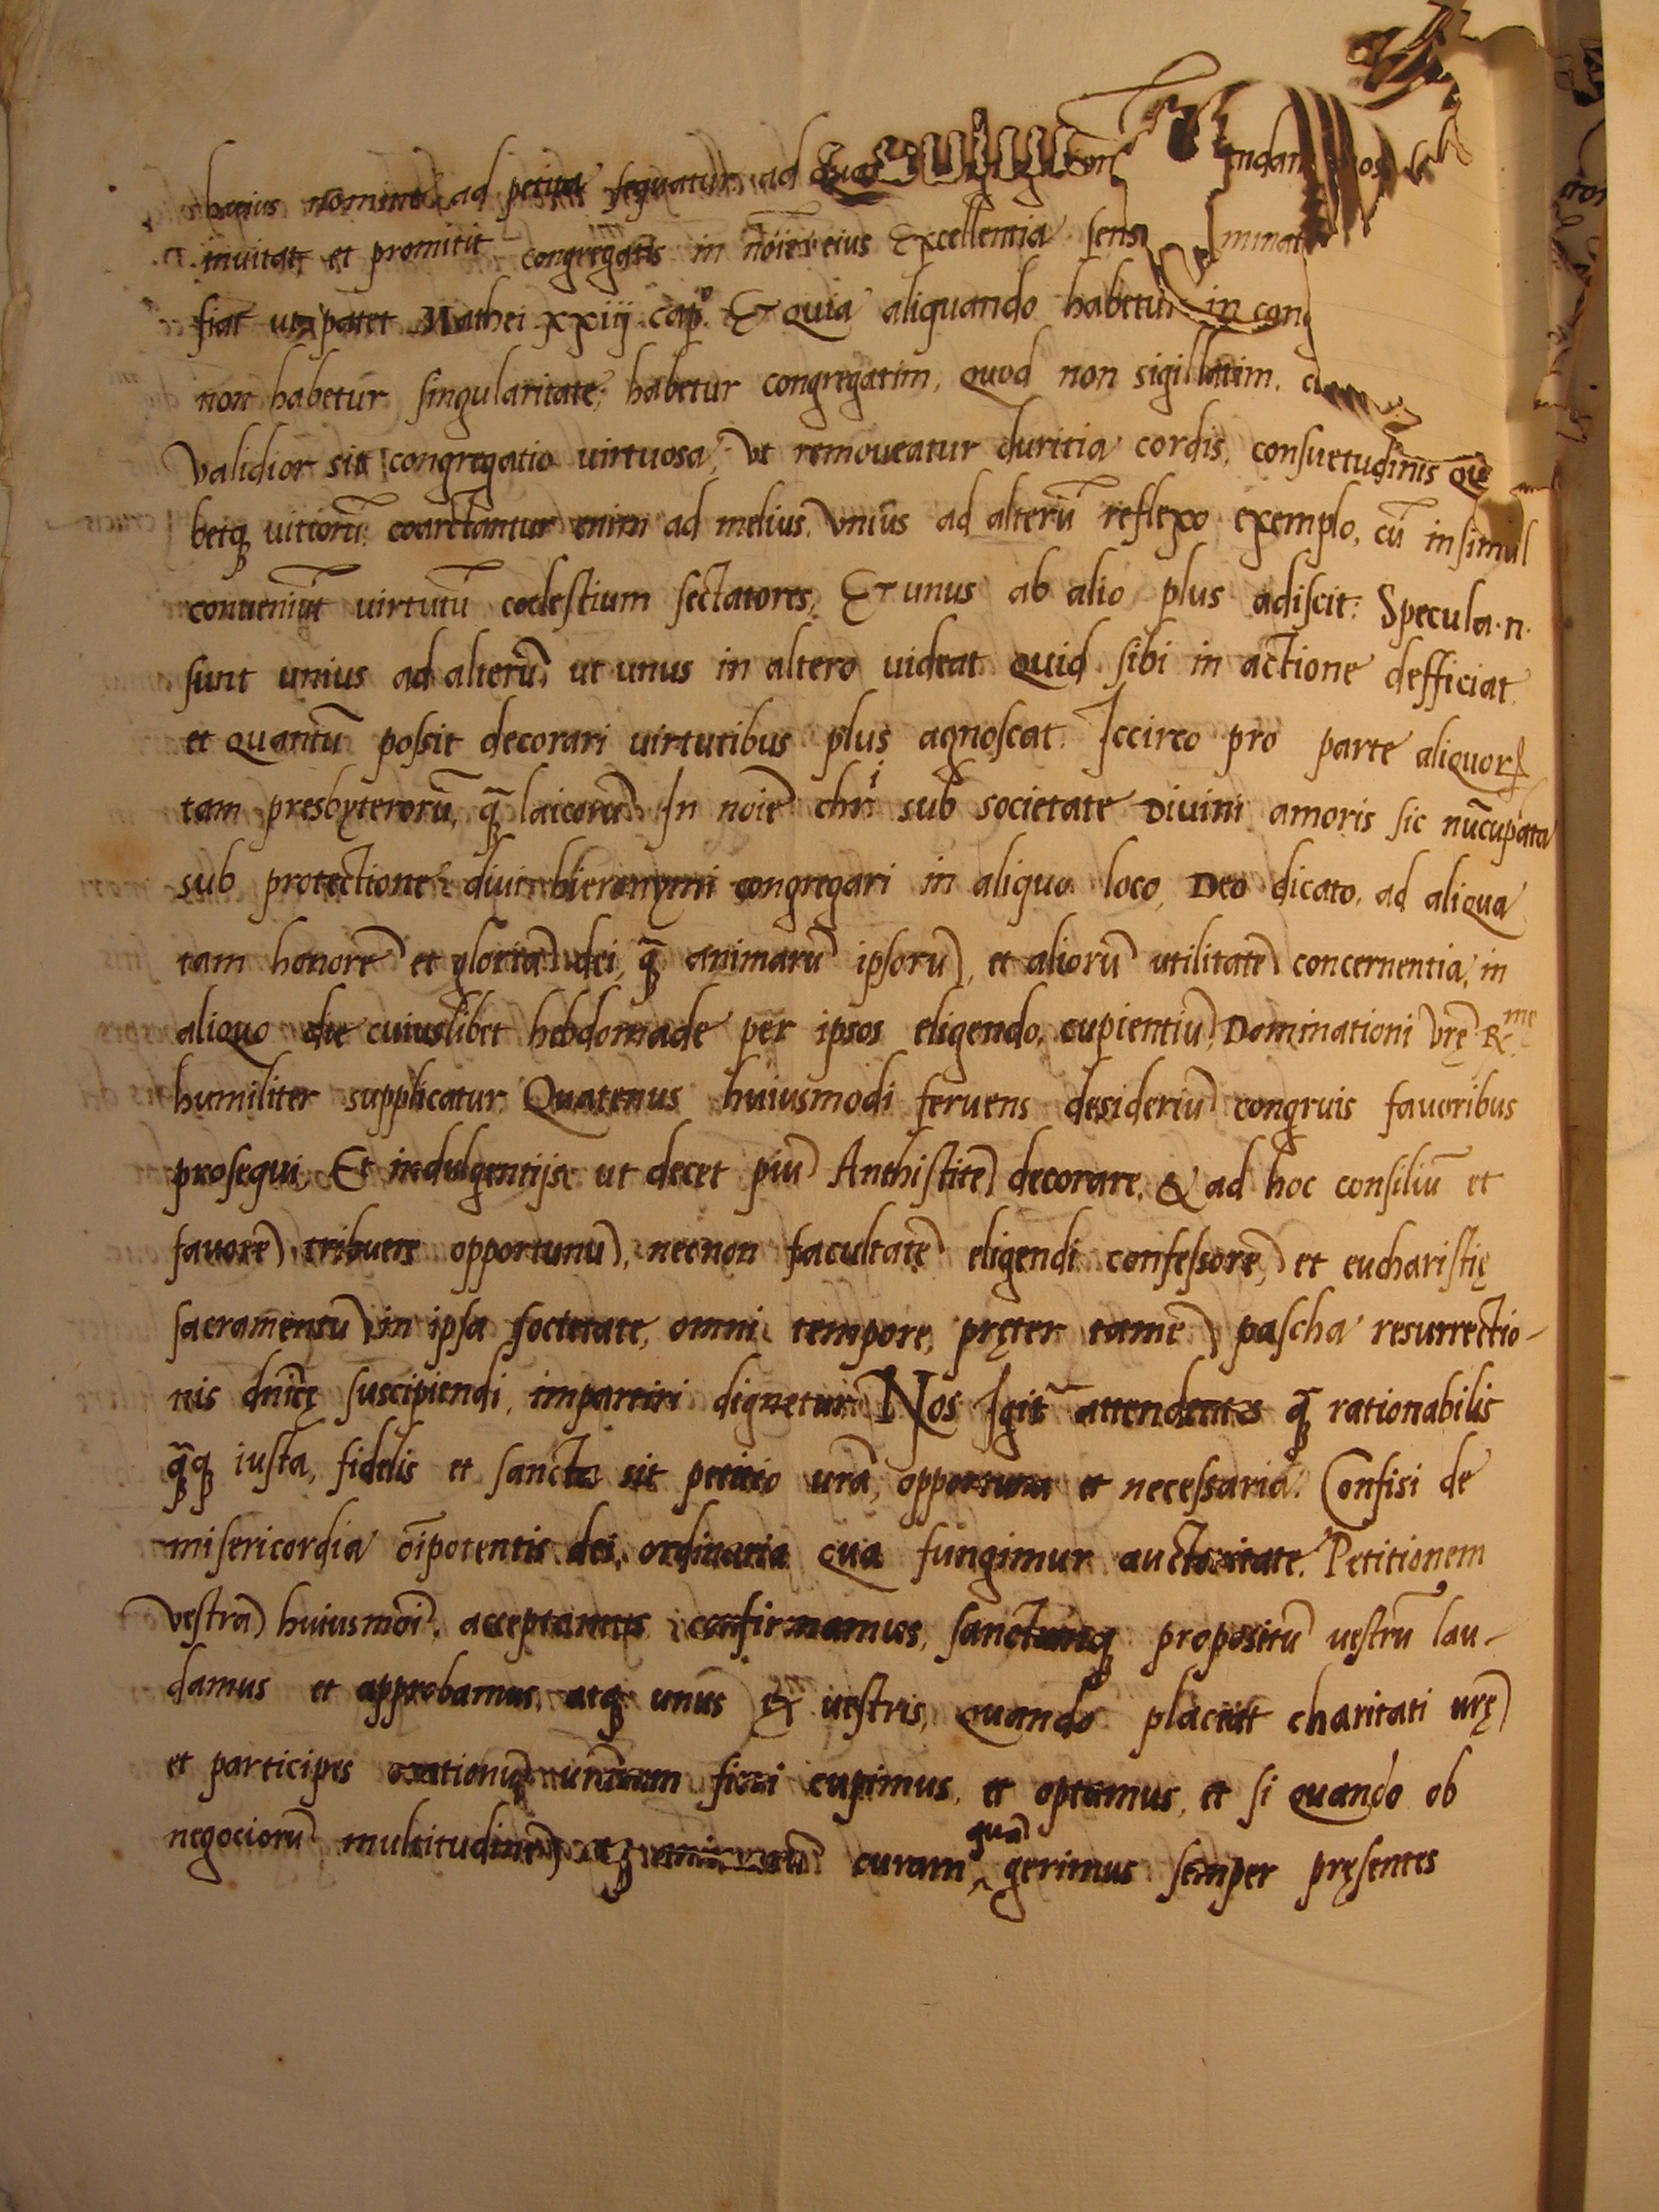 huius nomine ad petita sequatur ad quas
inuitat, et promitit congregatis in nōie eius Excellentia sens minat
fiat ut patet Mathei xxiij cap.º Et quia aliquando habetur in cong
non habetur singularitate; habetur congregatim, quod non sigillatim.
Validior sit congregatio uirtuosa, Vt remoueatur duritia cordis, consuetudinis
uitiorū: coarctantur enim ad melius, Vnius ad alterū reflexo exemplo, cū insimul
conueniūt uirtutū coelestium sectatores, Et unus ab alio plus adiscit: Specula .n.
sunt unius ad alterū, ut unus in altero uideat quid sibi in actione defficiat,
et quantū possit decorari uirtutibus plus agnoscat. Iccirco pro parte aliquorꝝ
tam presbyterorū, q̄ꝫ laicorū In noīe chrī sub societate Diuini amoris sic nūcupata
sub protectione diui hieronymi congregari in aliquo loco, Deo dicato, ad aliqua
tam honorē et gloriā dei, q̄ꝫ animarū ipsorū, et aliorū utilitatē concernentia, in
aliquo die cuiuslibet hebdomade per ipsos eligendo, cupientiū, Dominationi Vrę R.me
humiliter supplicatur Quatenus huiusmodi feruens desideriū congruis fauoribus
prosequi, Et indulgentijs ut decet piū Anthistitē decorare, & ad hoc consiliū et
fauorē tribuere opportunū, necnon facultatē eligendi confessorē, et eucharistię
sacramentū in ipsa societate, omni tempore, pręter tamē pascha resurrectio-
nis dnīcę suscipiendi, impartiri dignetur. Nos Igit̄ attendentes q̄ꝫ rationabilis
q̄ꝫqꝫ iusta, fidelis et sancta sit petitio urā, opportuna et necessaria. Confisi de
misericordia oīpotentis dei, ordinaria qua fungimur auctoritate. Petitionem
Vestrā huiusmōi, acceptamus confirmamus, sanctumqꝫ propositū uestrū lau-
damus et approbamus, atqꝫ unus ex uestris, quando placuit charitati urę
et participes orationū urārum fieri cupimus, et optamus, et si quando ob
negociorū multitudinē curam quā gerimus semper pręsentes